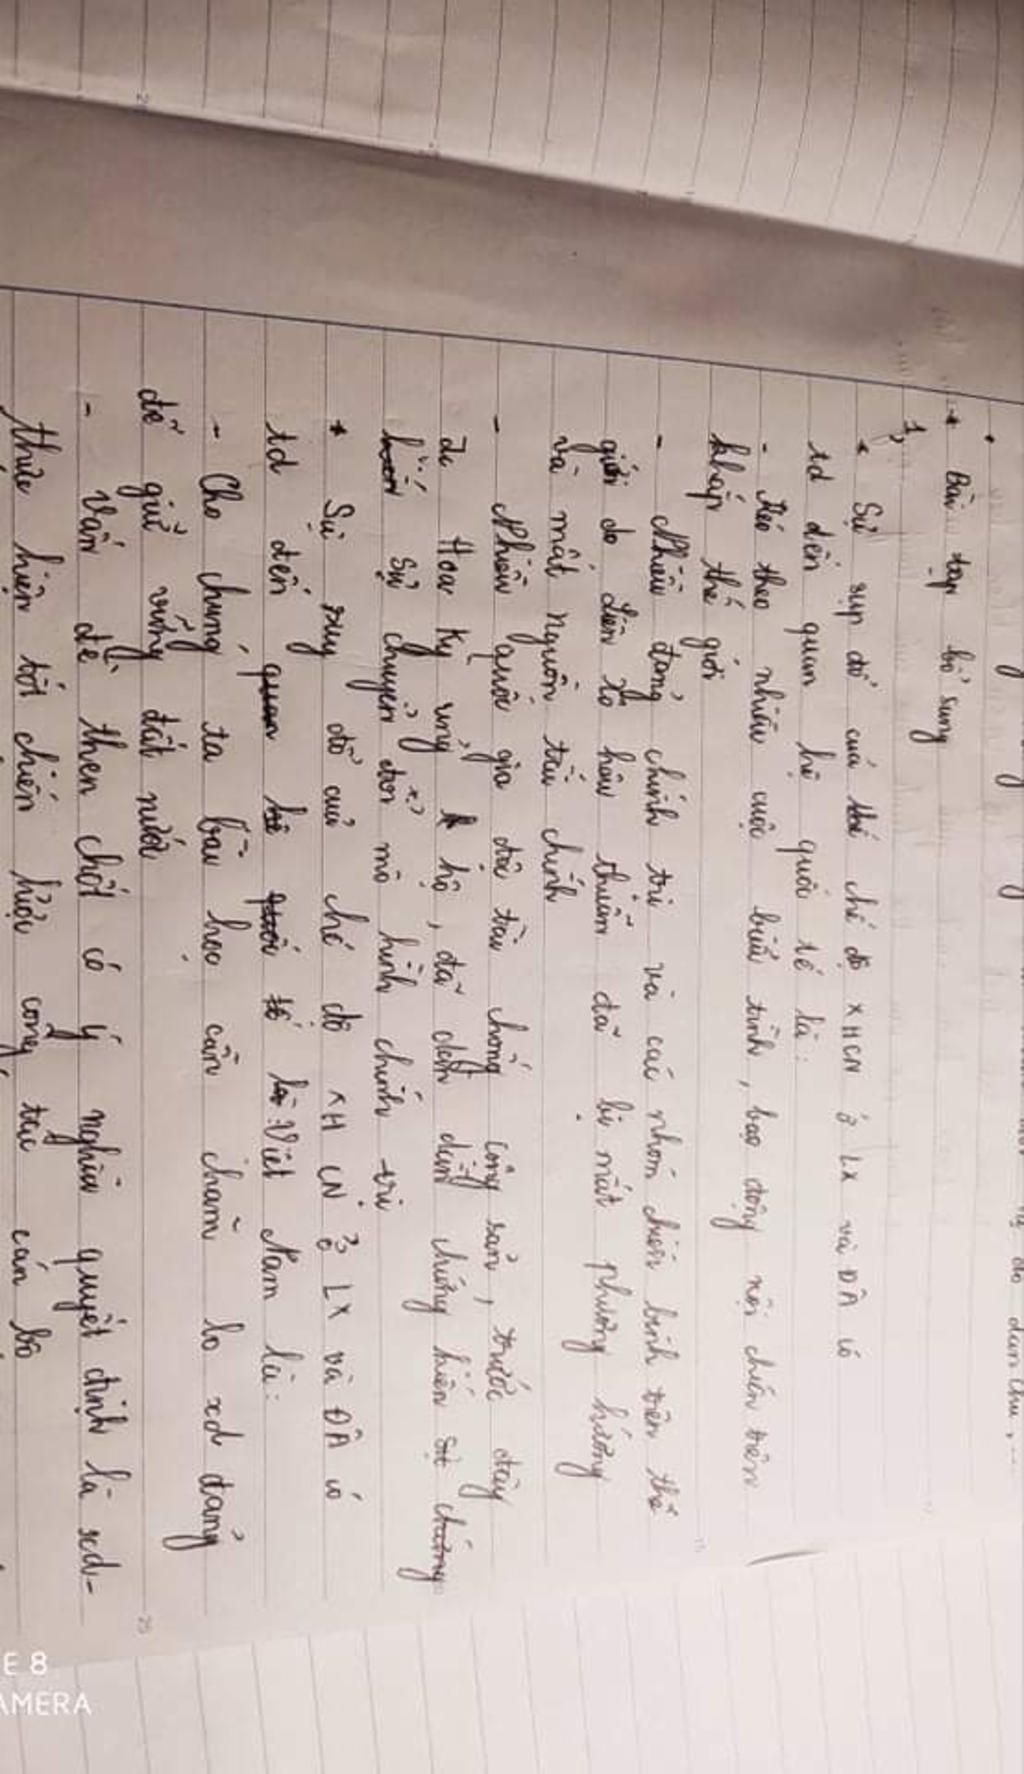 * Bài tập bổ sung
1,
* Sự sụp đổ của chế độ XHCN ở LX và ĐÂ có
tđ đến quan hệ quốc tế là:
- Kéo theo nhiều cuộc biểu tình, bạo động nội chiến trên
khắp thế giới
- Nhiều đảng chính trị và các nhóm chiến binh trên thế
giới do Liên Xô hậu thuẫn đã bị mất phương hướng
và mất nguồn tài chính
- Nhiều quốc gia độc tài chống cộng sản, trước đây
Hoa Kỳ ủng hộ, đã dần dần chứng kiến
sự chuyển đổi mô hình chính trị
* Sự sụp đổ của chế độ XHCN ở LX và ĐÂ có
tđ đến Việt Nam là:
- Cho chúng ta bài học cần chăm lo xd đảng
để giữ vững đất nước
- Vấn đề then chốt có ý nghĩa quyết định là xd-
thực hiện tốt chiến lược công tác cán bộ
E 8
AMERA